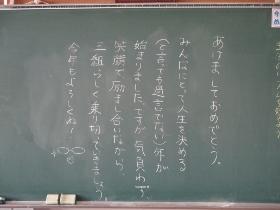 あけましておめでとう。
みんなにとって人生を決める
(と言っても過言でない)年が
始まりました。ですが気負わず、
笑顔で励まし合いながら、
三組らしく乗り切っていきましょう。
今年もよろしくね!